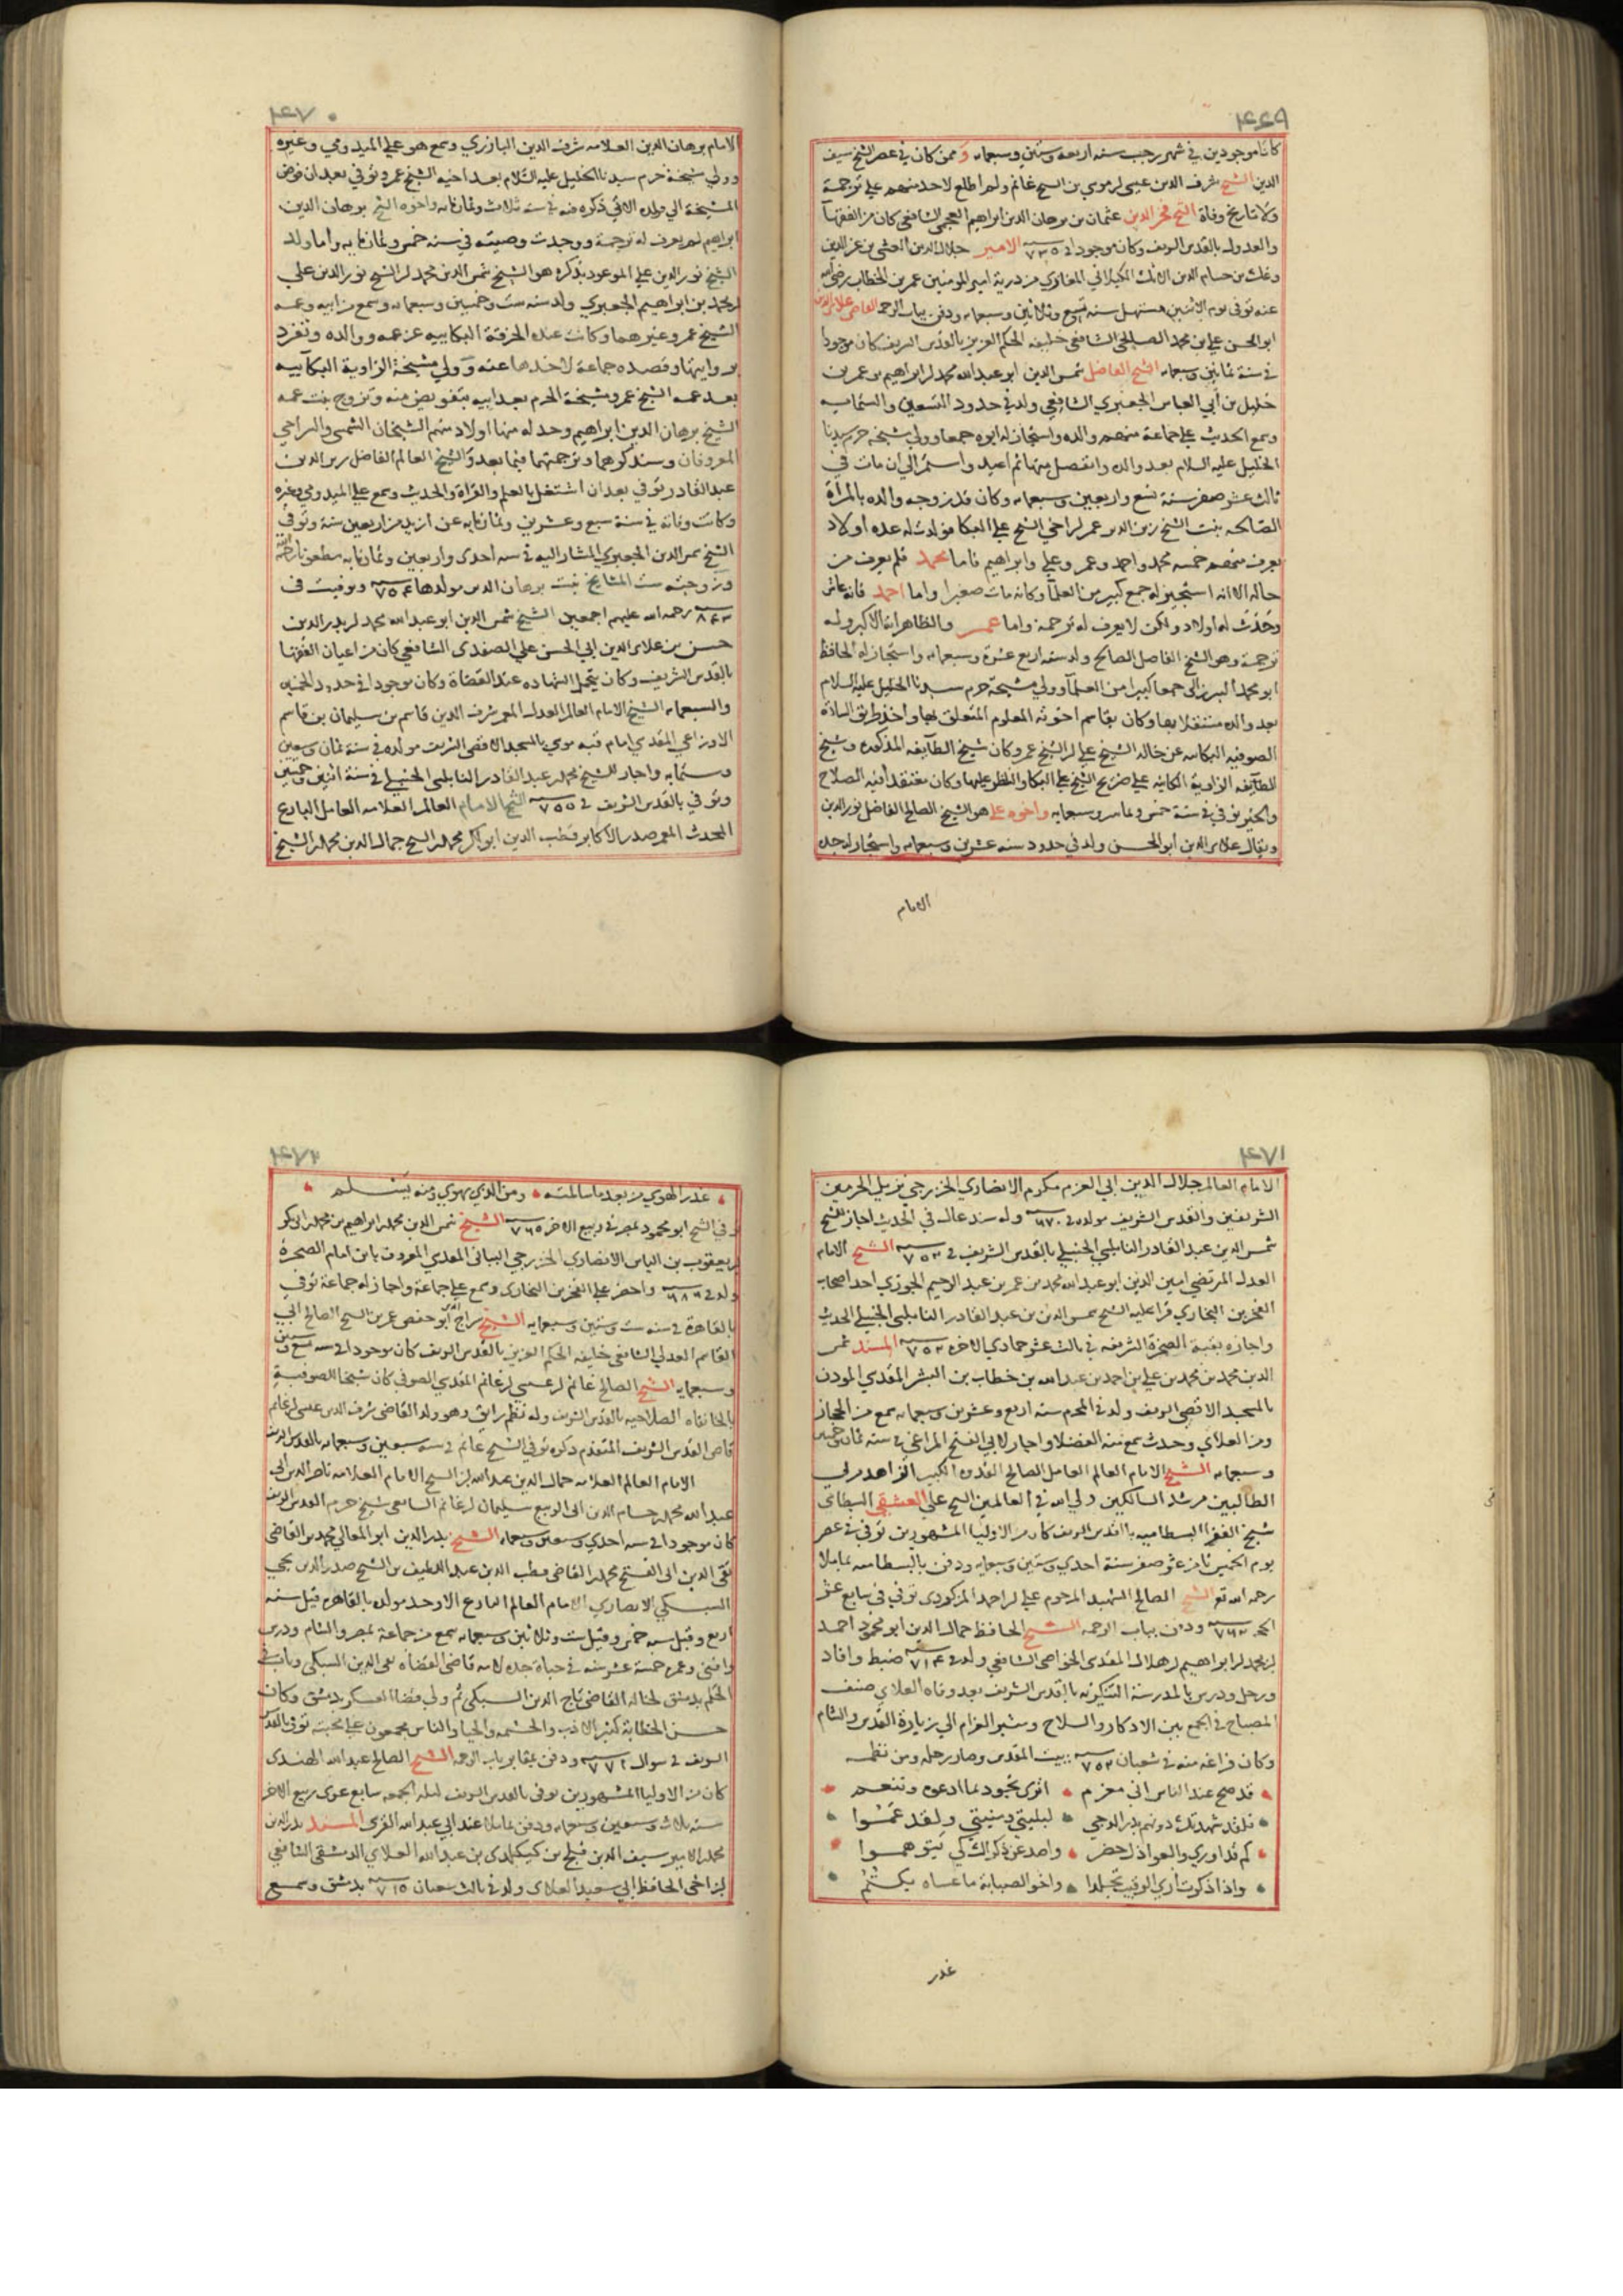 ٤٦٩
كانا موجودين في شهر رجب سنه اربعه وستين وسبعمايه وممن كان في عصر الشيخ سيف
الدين الشيخ شرف الدين عيسى بن موسى بن الشيخ غانم ولم اطلع لاحد منهم على ترجمة
ولا تاريخ وفاة الشيخ فخر الدين عثمان بن برهان الدين ابراهيم العجمي الشافعي كان من الفقها
والعدول بالقدس الشريف وكان موجودا في ٧٣٥ الامير جلال الدين بن عز الدين
بن حسام الدين الكيلاني من ذرية امير المومنين عمر بن الخطاب رضي الله
عنه توفى يوم الاثنين مستهل سنه تسع وثلاثين وسبعمايه ودفن بباب الرحمه القاضي علا الدين
ابو الحسن علي بن محمد الشافعي خليفه الحكم العزيز بالقدس الشريف كان موجودا
في سنة ثمانين وسبعمايه الشيخ الفاضل شمس الدين ابو عبد الله محمد بن ابراهيم بن عمر بن
خليل بن ابي العباس الجعبري الشافعي ولد في حدود التسعين والستمايه
وسمع الحديث على جماعة منهم والده واستجاز له ابوه جمعا وولي مشيخة حرم سيدنا
الخليل عليه السلام بعد والده وانفصل عنها ثم اعيد واستمر الى ان مات في
ثالث عشر صفر سنة تسع واربعين وسبعمايه وكان قد زوجه والده بالمراة
الصالحه بنت الشيخ زين الدين عمر بن اخي الشيخ علي البكا فولدت له عدة اولاد
يعرف منهم خمسه محمد واحمد وعمر وعلي وابراهيم فاما محمد فلم يعرف من
حاله الا انه استجيز له جمع كبير من العلما وكانه مات صغيرا واما احمد فانه عاش
وحدث له اولاد ولكن لا يعرف له ترجمة واما عمر والظاهر انه الاكبر وله
ترجمة وهو الشيخ الفاضل الصالح ولد سنه اربع عشرة وسبعمايه واستجاز له الحافظ
ابو محمد البرزالي جمعا كبيرا من العلما وولي مشيخة حرم سيدنا الخليل عليه السلام
بعد والده مستقلا بها وكان يقاسم اخوته المعلوم المتعلق بها واخذ طريق السادة
الصوفيه البكاييه عن خاله الشيخ علي بن الشيخ عمر وكان شيخ الطايفه المذكوره وشيخ
للطايفه الزاوية الكاينه على ضريح الشيخ علي البكا والنظر عليها وكان معتقدا فيه الصلاح
والخير توفي في سنة خمس وثمانين وسبعمايه واخوه علي هو الشيخ الصالح الفاضل نور الدين
ويقال علا الدين ابو الحسن ولد في حدود سنه عشرين وسبعمايه واستجاز له جده
الامام
٤٧٠
الامام برهان الدين العلامه شرف الدين البارزي وسمع هو على الميدومي وغيره
وولي مشيخة حرم سيدنا الخليل عليه السلام بعد اخيه الشيخ عمر وتوفي بعد ان فوض
المشيخة الي ولده الاتي ذكره منه في سنة ثلاث وثمانمايه واخوه الشيخ برهان الدين
ابراهيم لم يعرف له ترجمة ووجدت وصيته في سنه خمس وثمانمايه واما ولد
الشيخ نور الدين علي الموعود بذكره هو الشيخ شمس الدين محمد بن الشيخ نور الدين علي
بن محمد بن ابراهيم الجعبري ولد سنه ست وخمسين وسبعمايه وسمع من ابيه وعمه
الشيخ عمر وغيرهما وكانت عنده الخرقة البكاييه عن عمه ووالده وتفرد
بروايتها وقصده جماعة لاخذها عنه وولي مشيخة الزاوية البكاييه
بعد عمه الشيخ عمر ومشيخة الحرم بعد ابيه بتفويض منه وتزوج بنت عمه
الشيخ برهان الدين ابراهيم وحد له منها اولاد منهم الشيخان الشمسي والسراجي
المعروفان وسنذكرهما وترجمتهما فيما بعد والشيخ العالم الفاضل زين الدين
عبد القادر توفي بعد ان اشتغل بالعلم والقراة والحديث وسمع على الميدومي وغيره
وكانت وفاته في سنة سبع وعشرين وثمانمايه عن ازيد من اربعين سنة وتوفي
الشيخ شمس الدين الجعبري المشار اليه في سنه احدى واربعين وثمانمايه مطعونا رحمه الله
وزوجته ست المشايخ بنت برهان الدين مولدها ٧٥٤ وتوفيت في
٨٤٣ رحمه الله عليهم اجمعين الشيخ شمس الدين ابو عبد الله محمد بن بدر الدين
حسن بن علا الدين ابي الحسن علي الصفدي الشافعي كان من اعيان الفقها
بالقدس الشريف وكان يتحمل الشهاده عند القضاة وكان موجودا في حدود الخمسين
والسبعمايه الشيخ الامام العالم العدل المعمر شرف الدين قاسم بن سليمان بن قاسم
الاوزاعي المقدسي امام قبه موسي بالمسجد الاقصى الشريف مولده في سنة ثمان وسبعين
وستمايه واجاز للشيخ محمد بن عبد القادر النابلسي الحنبلي في سنة اثنين وخمسين
وتوفي بالقدس الشريف في ٧٥٥ الشيخ الامام العالم العلامه العامل البارع
المحدث المعمر صدر الاكابر قطب الدين ابو بكر محمد بن الشيخ جمال الدين محمد بن الشيخ
٤٧١
الامام العالم جلال الدين ابي العزم مكرم الانصاري الخزرجي نزيل الحرمين
الشريفين والقدس الشريف مولده في ٦٧٠ وله سند عال في الحديث اجاز للشيخ
شمس الدين عبد القادر النابلسي الحنبلي بالقدس الشريف في ٧٥٣ الشيخ الامام
العدل المرتضي امين الدين ابو عبد الله محمد بن عمر بن عبد الرحيم الجوزي احد اصحاب
الفخر بن البخاري قرا عليه الشيخ شمس الدين بن عبد القادر النابلسي الحنبلي الحديث
واجازه بقبة الصخرة الشريفه في ثالث عشر جمادي الاخره ٧٥٣ المسند شمس
الدين محمد بن محمد بن علي بن احمد بن عبد الله بن خطاب بن البشر المقدسي الموذن
بالمسجد الاقصى الشريف ولد في المحرم سنه اربع وعشرين وسبعمايه سمع من الحجاز
ومن العلاي وحدث سمع منه الفضلا واجاز لابي الفتح المراغي في سنه ثمان وخمسين
وسبعمايه الشيخ الامام العالم العامل الصالح القدوة الكبير الزاهد مربي
الطالبين مرشد السالكين ولي الله في العالمين الشيخ علي العشقي البسطامي
شيخ الفقرا البسطاميه بالقدس الشريف كان من الاوليا المشهورين توفي في عصر
يوم الخميس ثامن عشر صفر سنة احدي وستين وسبعمايه ودفن بالبسطاميه بماملا
رحمه الله تع الشيخ الصالح الشهيد المرحوم علي بن احمد المركودي توفي في سابع عشر
الحجه ٧٦٣ ودفن بباب الرحمه الشيخ الحافظ جمال الدين ابو محمود احمد
بن محمد بن ابراهيم بن هلال المقدسي الخواصي الشافعي ولد في ٧١٤ ضبط وافاد
ورحل ودرس بالمدرسة التنكزيه بالقدس الشريف بعد وفاه العلاي صنف
المصباح في الجمع بين الاذكار والسلاح ومثير الغرام الي زيارة القدس والشام
وكان فراغه منه في شعبان ٧٥٣ ببيت المقدس وصار رحله ومن نظمه
قد صح عند الناس اني مغرم اترى بجود بما ادعوه وتنعم
فلقد شهدتك دونهم بدر الدجي لبليتي ومنيتي ولقد عمشوا
كم قد اوري والعواذل حضر واصد عن ذكراك كي يتوهموا
واذا ذكرت اري الرقيب تجلدا واخو الصبابة ما عساه يكتم
غدر
٤٧٢
غدر الهوي من بعد ما سالمته ومن الذي يهوي ومنه يسلم
توفي الشيخ ابو محمود بمصر في ربيع الاخر ٧٦٥ الشيخ شمس الدين محمد بن ابراهيم بن محمد بن ابي بكر
بن يعقوب بن الياس الانصاري الخزرجي البياني المقدسي المعروف بابن امام الصخرة
ولد في ٦٨٦ واحضر على الفخر بن البخاري وسمع على جماعة واجاز له جماعة توفي
بالقاهرة في سنه ست وستين وسبعمايه الشيخ سراج الدين ابو حفص عمر بن الشيخ الصالح ابي
القاسم العدلي الشافعي خليفه الحكم العزيز بالقدس الشريف كان موجودا في سنه تسع وستين
وسبعمايه الشيخ الصالح غانم بن عيسى بن غانم المقدسي الصوفي كان شيخا للصوفية
بالخانقاه الصلاحيه بالقدس الشريف وله نظم رايق وهو ولد القاضي شرف الدين عيسى بن غانم
قاضي القدس الشريف المتقدم ذكره توفي الشيخ غانم في سنه سبعين وسبعمايه بالقدس الشريف
الامام العالم العلامه جمال الدين عبد الله بن الشيخ الامام العلامه ناصر الدين ابي
عبد الله محمد بن حسام الدين ابي الربيع سليمان بن غانم الشافعي شيخ حرم القدس الشريف
كان موجودا في سنه احدي وسبعين وسبعمايه الشيخ بدر الدين ابو المعالي محمد بن القاضي
تقي الدين ابي الفتح محمد بن القاضي قطب الدين عبد اللطيف بن الشيخ صدر الدين يحيي
السبكي الانصاري الامام العالم البارع الاوحد مولده بالقاهره قيل سنه
اربع وقيل سنه خمس وقيل ست وثلاثين وسبعمايه سمع من جماعة بمصر والشام ودرس
وافتى وعمره خمسة عشر سنه في حياة جده لامه قاضي القضاه تقي الدين السبكي وناب في
الحكم بدمشق لخاله القاضي تاج الدين السبكي ثم ولي قضا العسكر بدمشق وكان
حسن الخطابة كثير الادب والحشمه والحيا والناس مجمعون على محبته توفي بالقدس
الشريف في شوال ٧٧١ ودفن بمقابر باب الرحمه الشيخ الصالح عبد الله الهندي
كان من الاوليا المشهورين توفي بالقدس الشريف ليله الجمعه سابع عشري ربيع الاخر
سنه ثلاث وسبعين وسبعمايه ودفن بماملا عند ابي عبد الله القرشي المسند بدر الدين
محمد بن الامير سيف الدين قليج بن كيكلدي بن عبد الله العلاي الدمشقي الشافعي
بن اخي الحافظ ابي سعيد العلاي ولد في ثالث شعبان ٧١٥ بدمشق وسمع